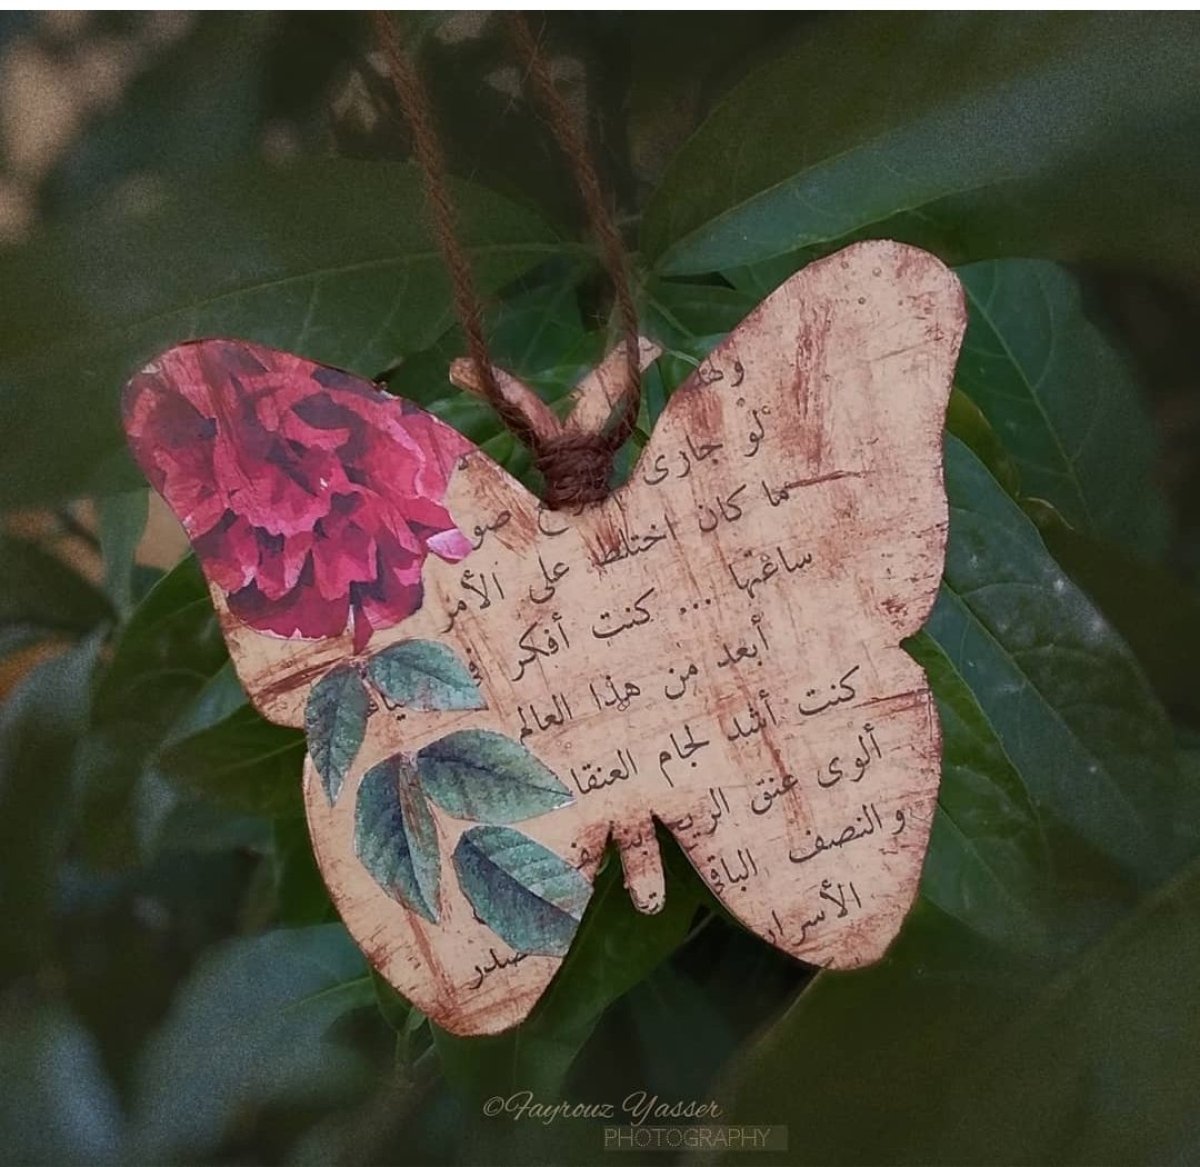 لو جارى صو
ما كان اختلط على الأمر
ساعتها ... كنت أفكر
أبعد من هذا العالم
كنت أشد لجام العنقا
ألوى عنق الريـ
والنصف الباقـ
الأسرار
صدر
©Fayrouz Yasser
PHOTOGRAPHY